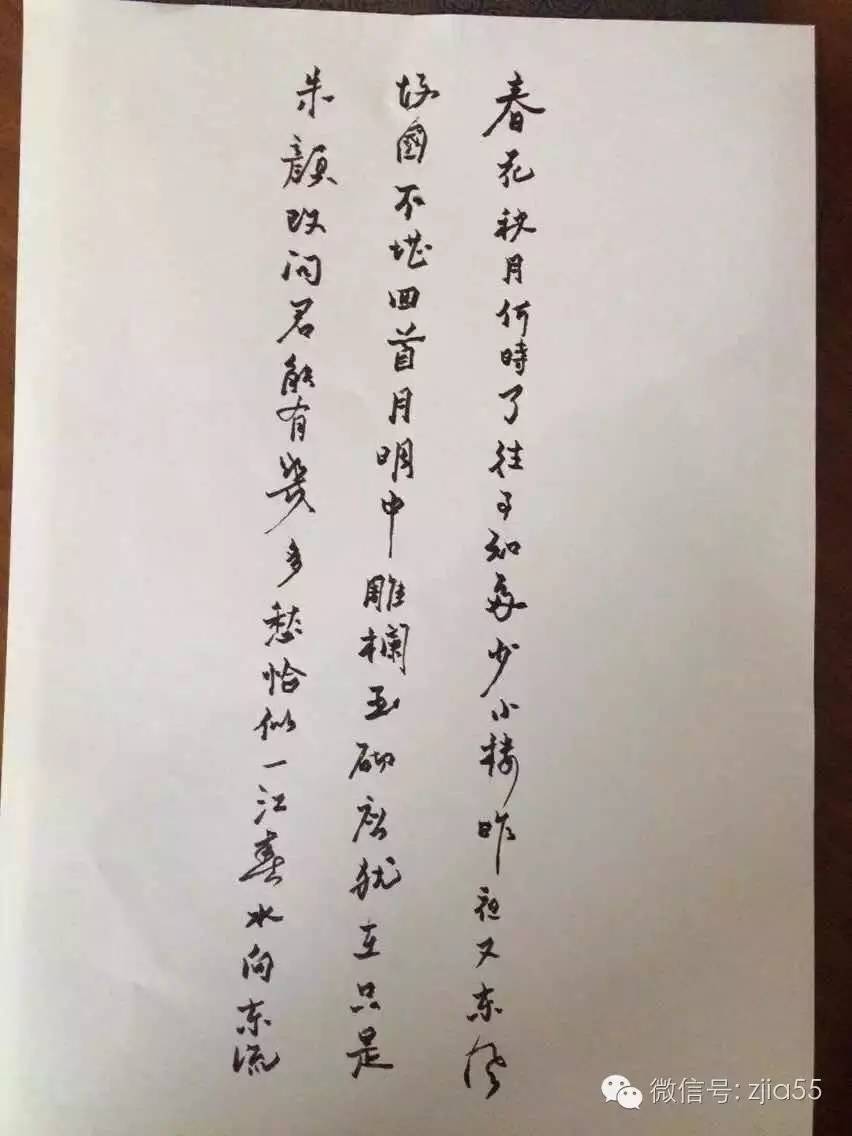 春花秋月何時了往事知多少小樓昨夜又东風
故國不堪回首月明中雕欄玉砌應猶在只是
朱顏改问君能有幾多愁恰似一江春水向东流
微信号: zjia55